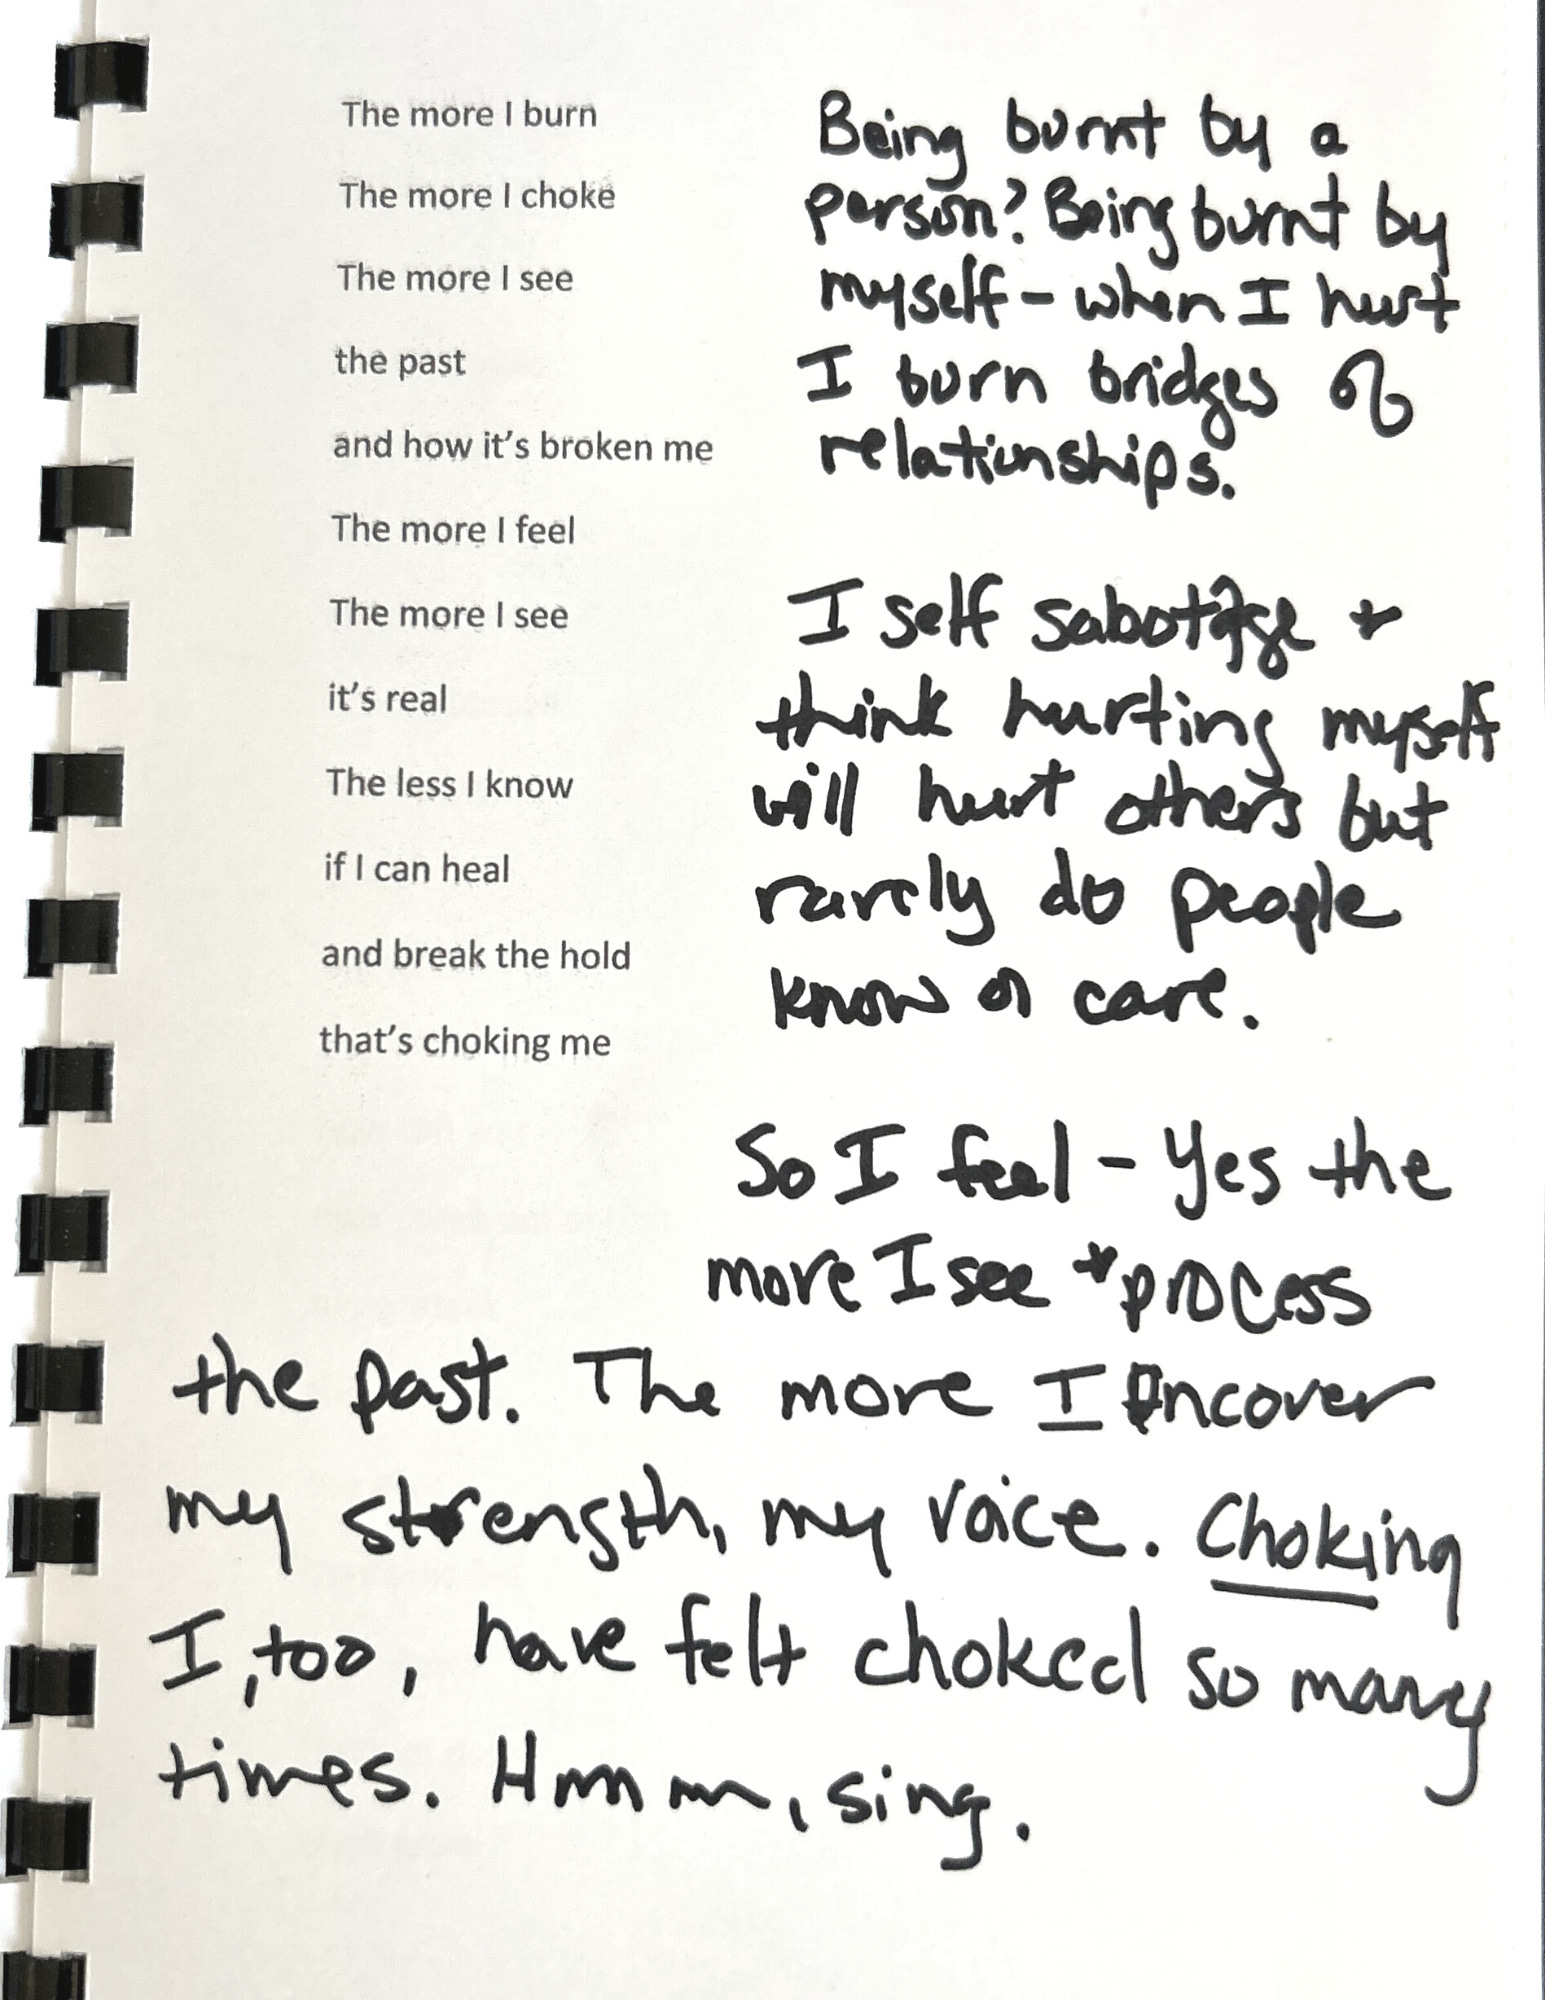 The more I burn
The more I choke
The more I see
the past
and how it's broken me
The more I feel
The more I see
it's real
The less I know
if I can heal
and break the hold
that's choking me
Being burnt by a
person? Being burnt by
myself - when I hurt
I burn bridges of
relationships.
I self sabotage +
think hurting myself
will hurt others but
rarely do people
know or care.
So I feel - Yes the
more I see + process
the past. The more I uncover
my strength, my voice. Choking
I, too, have felt choked so many
times. Hmmm, sing.